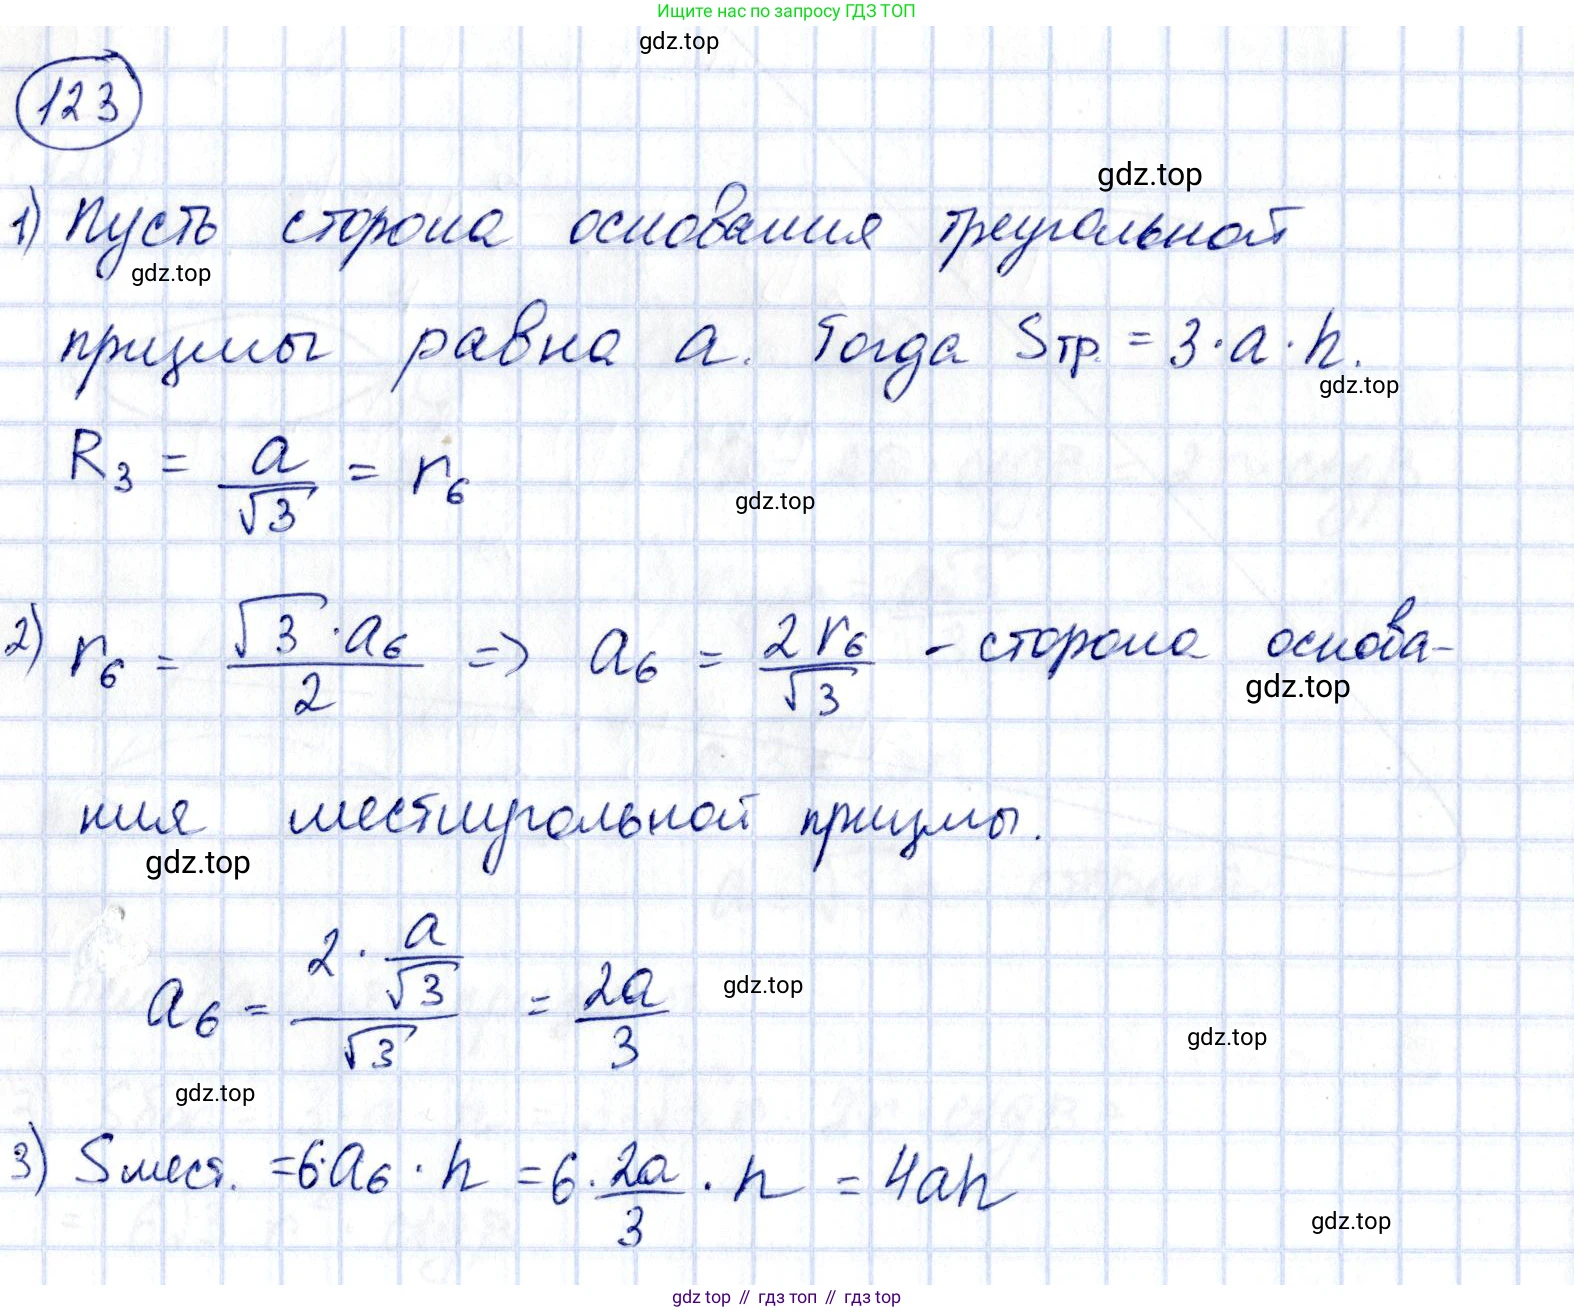 Ищите нас по запросу ГДЗ ТОП
gdz.top
123
gdz.top
1) Пусть сторона основания треугольной
gdz.top
призмы равна a. Тогда Sтр. = 3·a·h.
gdz.top
R₃ = a/√3 = r₆
gdz.top
2) r₆ = √3·a₆/2 => a₆ = 2r₆/√3 - сторона основа-
gdz.top
ния шестиугольной призмы.
gdz.top
a₆ = (2·a/√3)/√3 = 2a/3
gdz.top
gdz.top
gdz.top
3) Sшест. = 6·a₆·h = 6·2a/3·h = 4ah
gdz.top
gdz top // гдз топ // гдз top